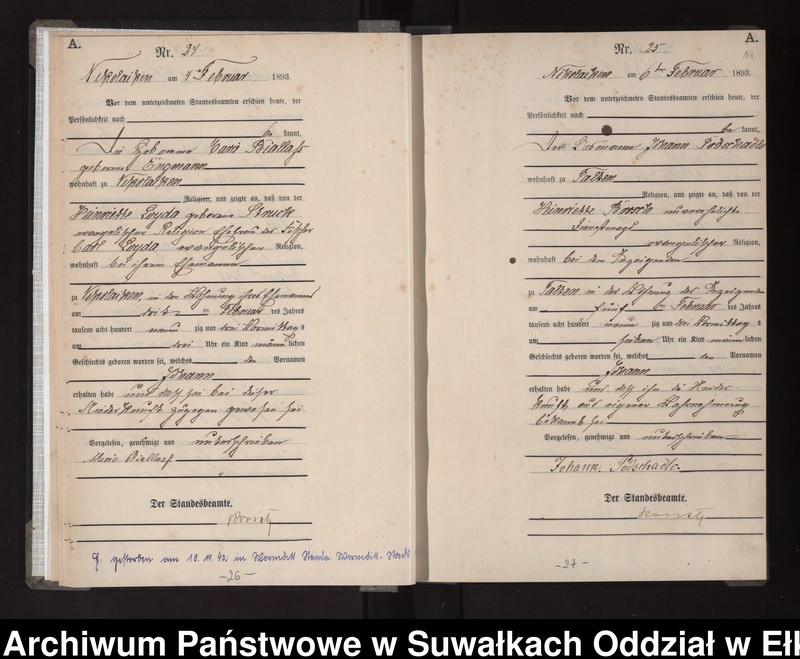 A.
Nr. 24
Nikolaiken am 4ten Februar 1893.
Vor dem unterzeichneten Standesbeamten erschien heute, der
Persönlichkeit nach
be kannt,
Die Hebamme Marie Biallass
geborene Engmann
wohnhaft zu Nikolaiken
Religion, und zeigte an, daß von der
Heinriette Loyda geborene Struck
evangelischer Religion Ehefrau des Fischer
Carl Loyda evangelischer Religion,
wohnhaft bei ihrem Ehemanne
zu Nikolaiken, in der Wohnung ihres Ehemannes
am dritten Februar des Jahres
tausend acht hundert neun zig und drei Vormittags
um drei Uhr ein Kind männ lichen
Geschlechts geboren worden sei, welches den Vornamen
Johann
erhalten habe und daß sie bei dieser
Niederkunft zugegen gewesen sei
Vorgelesen, genehmigt und unterschrieben
Marie Biallass.
Der Standesbeamte.
G. gestorben am 10.11.42 in Wormditt Standa. Wormditt-Stadt
-26-
A.
Nr. 25
Nikolaiken am 6ten Februar 1893.
Vor dem unterzeichneten Standesbeamten erschien heute, der
Persönlichkeit nach
be kannt,
Der Johann Podschadly
wohnhaft zu Talten
Religion, und zeigte an, daß von der
Heinriette unverehelichte
Dienstmagd
evangelischer Religion,
wohnhaft bei dem Anzeigenden
zu Talten in der Wohnung des Anzeigenden
am fünf ten Februar des Jahres
tausend acht hundert neun zig und drei Vormittags
um sieben Uhr ein Kind männ lichen
Geschlechts geboren worden sei, welches den Vornamen
Johann
erhalten habe und daß ihm die Nieder-
kunft aus eigener Wahrnehmung
bekannt sei
Vorgelesen, genehmigt und unterschrieben
Johann Podschadly
Der Standesbeamte.
-27-
Archiwum Państwowe w Suwałkach Oddział w Ełk